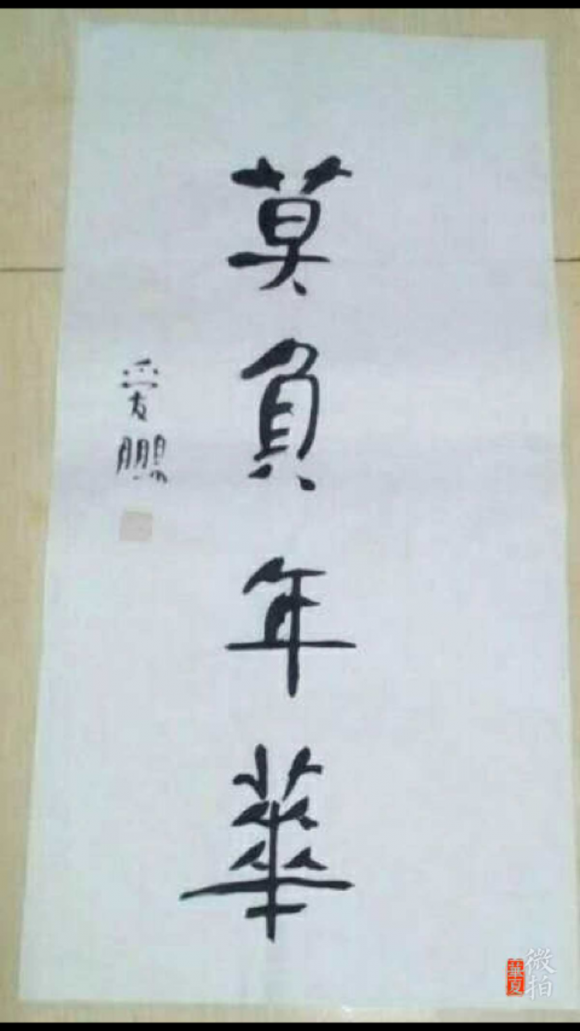 莫負年華
爱鵬
華夏
微拍